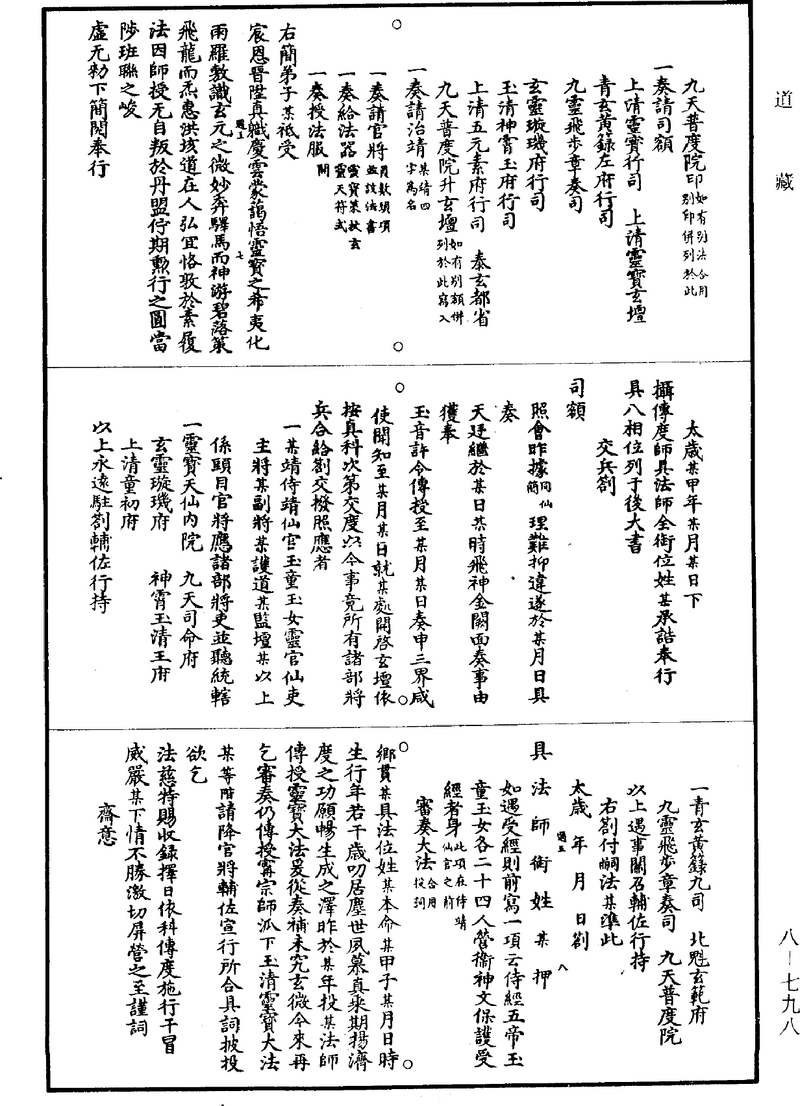 道藏
九天普度院印如有別法合用別印併列於此
一奏請司額
上清靈寶行司　上清靈寶玄壇
青玄黃籙左府行司
九靈飛步章奏司
玄靈璇璣府行司
玉清神霄玉府行司
上清五元素府行司　泰玄都省
九天普度院升玄壇如有別額併列於此寫入
一奏請治靖某靖四字為名
一奏請官將員數頭項並該法書
一奏給法器靈寶策杖玄靈天符式
一奏授法服開
右簡弟子某祗受
宸恩晉陞真職慶雲裳藹悟靈寶之希夷化
雨羅敷識玄元之微妙奔驛馬而神游碧落策
飛龍而炁惠洪垓道在人弘宜恪敭於素履
法因師授无自叛於丹盟佇期勲行之圓當
陟班聯之峻
虛无勑下簡閱奉行
太歲某甲年某月某日下
攝傳度師具法師全衘位姓某承誥奉行
具八相位列于後大書
交兵劄
司額
照會昨據同仙簡理難抑違遂於某月日具
奏
天廷繼於某日某時飛神金闕面奏事由
獲奉
玉音許令傳授至某月某日奏申三界咸
使聞知至某月某日就某處開啓玄壇依
按真科次第交度以今事竟所有諸部將
兵合給劄交撥照應者
一某靖侍靖仙官玉童玉女靈官仙吏
主將某副將某護道某監壇某以上
係頭目官將應諸部將吏並聽統轄
一靈寶天仙內院　九天司命府
玄靈璇璣府　神霄玉清王府
上清童初府
以上永遠駐劄輔佐行持
一青玄黃籙九司　北魁玄範府
九靈飛步章奏司　九天普度院
以上遇事關召輔佐行持
右劄付嗣法某準此
太歲　年　月　日劄
具法師衘姓某押
如遇受經則前寫一項云侍經五帝玉
童玉女各二十四人營衞神文保護受
經者身此項在侍靖仙官之前
審奏大法合用投詞
鄉貫某具法位姓某本命某甲子某月日時
生行年若干歲叨居塵世夙慕真乘期揚濟
度之功願暢生成之澤昨於某年投某法師
傳授靈寶大法爰從奏補未究玄微今來再
乞審奏仍傳授甯宗師派下玉清靈寶大法
某等階請降官將輔佐宣行所合具詞披投
欲乞
法慈特賜收録擇日依科傳度施行干冒
威嚴某下情不勝激切屏營之至謹詞
齋意
八－七九八